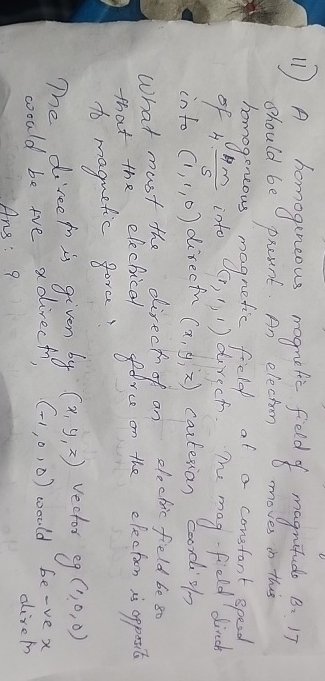 11) A homogeneous magnetic field of magnitude B = 1T
should be present. An electron moves in this
homogeneous magnetic field at a constant speed
of 4 m/s into (1,1,1) directn. The mag. field directn
into (1,1,0) directn (x,y,z) cartesian
What must the directn of an electric field be so
that the electrical force on the electron is opposite
to magnetic force,
The directn is given by (x,y,z) vector eg (1,0,0)
would be +ve x directn, (-1,0,0) would be -ve x directn
Ans: ?